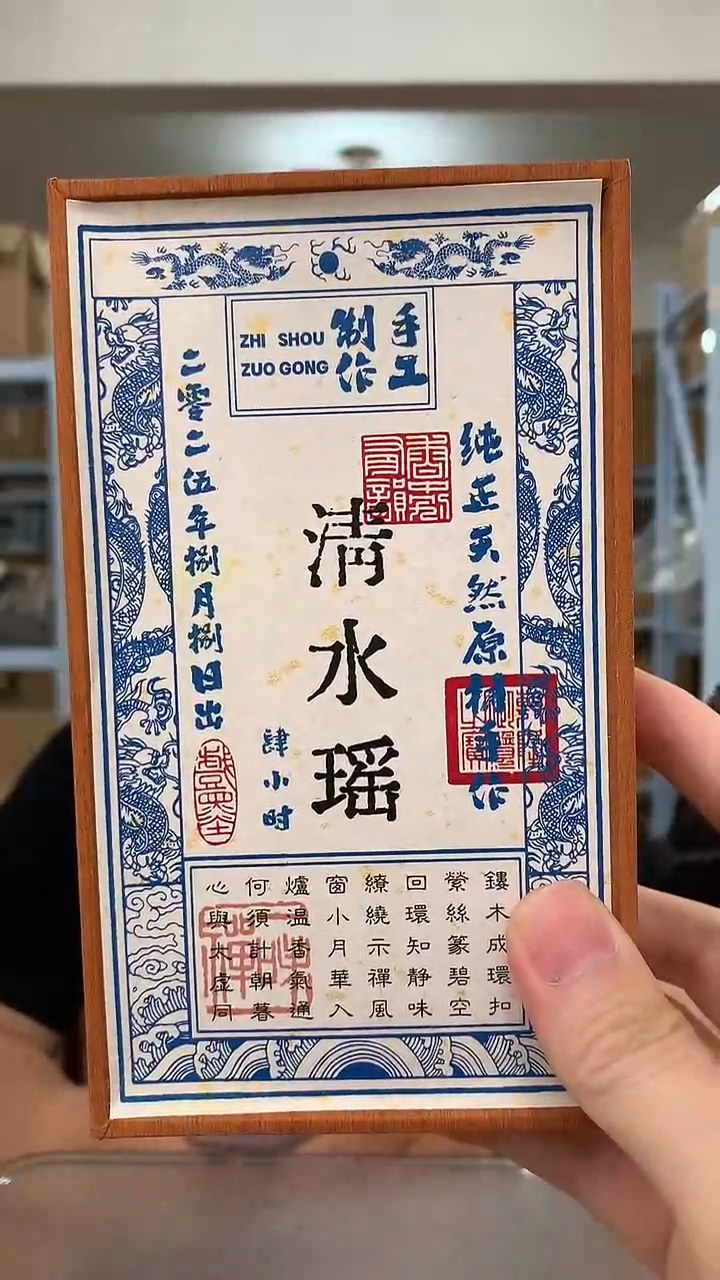 手工
制作
ZHI SHOU
ZUO GONG
纯正天然原材手作
清水瑶
肆小时
二零二伍年捌月捌日出
鏤木成環扣
縈絲篆碧空
回環知静味
繚繞示禪風
窗小月華入
爐温香氣通
何須計朝暮
心與太虛同